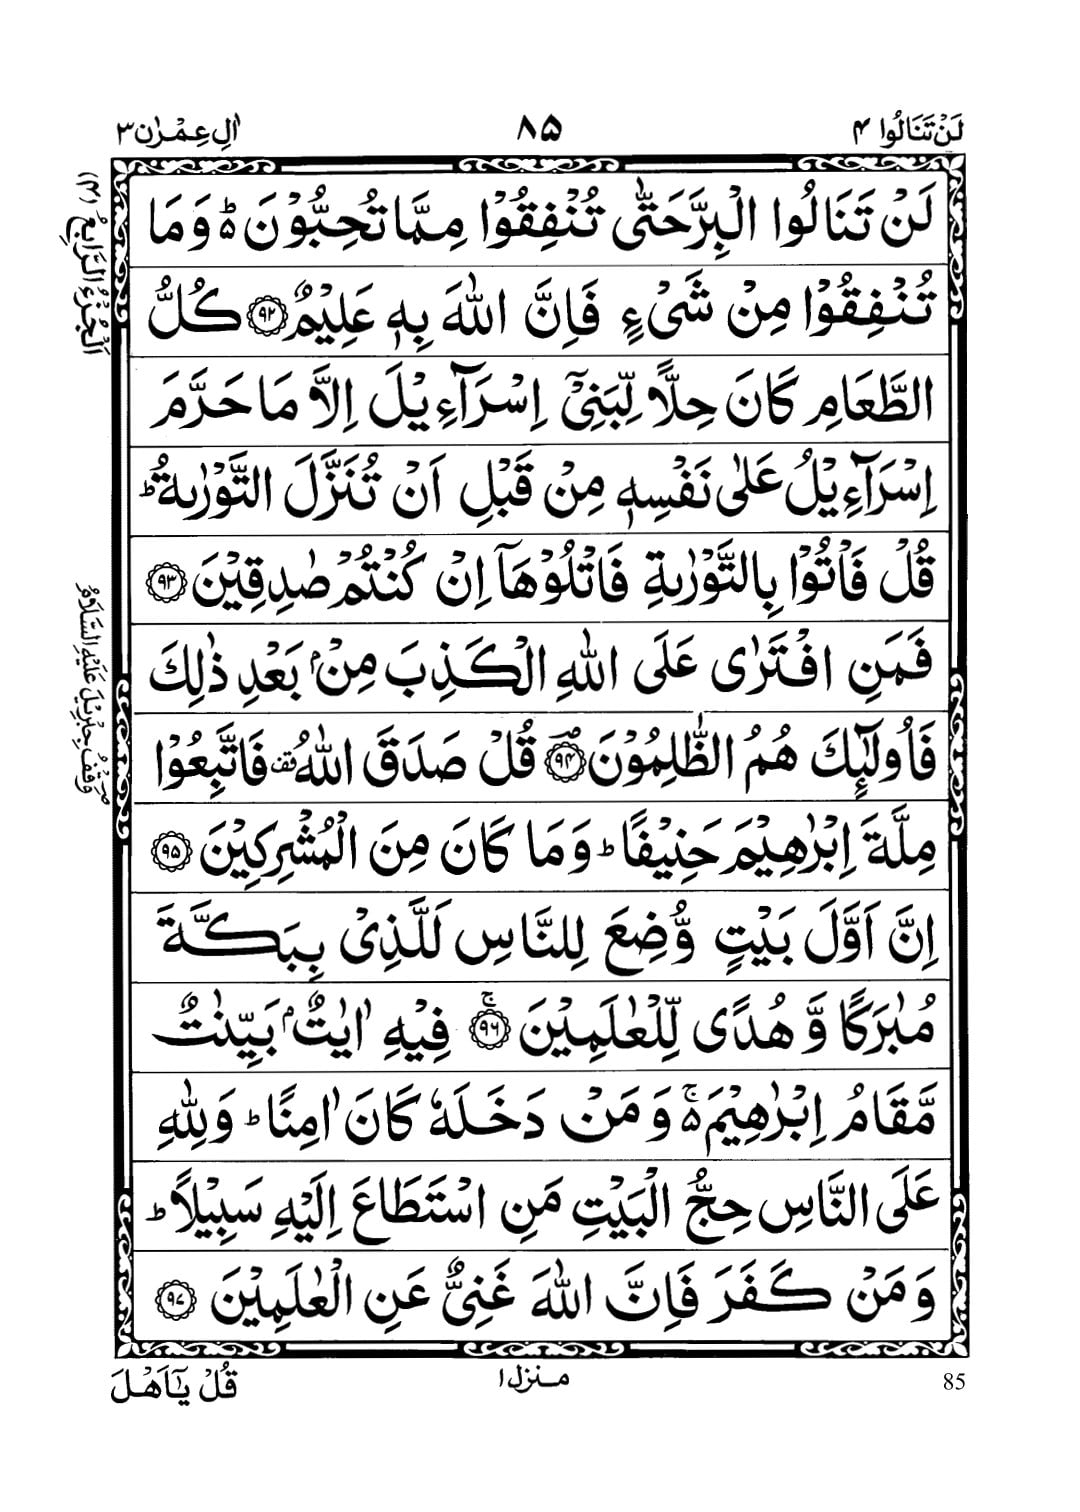 لَنْ تَنَالُوا ۴
۸۵
اٰلِ عِمْرٰن ۳
لَنْ تَنَالُوا الْبِرَّ حَتّٰى تُنْفِقُوْا مِمَّا تُحِبُّوْنَ ۵ؕ وَمَا
تُنْفِقُوْا مِنْ شَىْءٍ فَاِنَّ اللّٰهَ بِهٖ عَلِيْمٌ ﴿۹۲﴾ كُلُّ
الطَّعَامِ كَانَ حِلًّا لِّبَنِىْۤ اِسْرَآءِيْلَ اِلَّا مَا حَرَّمَ
اِسْرَآءِيْلُ عَلٰى نَفْسِهٖ مِنْ قَبْلِ اَنْ تُنَزَّلَ التَّوْرٰىةُ ؕ
قُلْ فَاْتُوْا بِالتَّوْرٰىةِ فَاتْلُوْهَاۤ اِنْ كُنْتُمْ صٰدِقِيْنَ ﴿۹۳﴾
فَمَنِ افْتَرٰى عَلَى اللّٰهِ الْكَذِبَ مِنْۢ بَعْدِ ذٰلِكَ
فَاُولٰٓئِكَ هُمُ الظّٰلِمُوْنَ ﴿۹۴﴾ؔ قُلْ صَدَقَ اللّٰهُ ࣞ فَاتَّبِعُوْا
مِلَّةَ اِبْرٰهِيْمَ حَنِيْفًا ؕ وَمَا كَانَ مِنَ الْمُشْرِكِيْنَ ﴿۹۵﴾
اِنَّ اَوَّلَ بَيْتٍ وُّضِعَ لِلنَّاسِ لَلَّذِىْ بِبَكَّةَ
مُبٰرَكًا وَّ هُدًى لِّلْعٰلَمِيْنَ ﴿۹۶﴾ۚ فِيْهِ اٰيٰتٌۢ بَيِّنٰتٌ
مَّقَامُ اِبْرٰهِيْمَ ۵ۚ وَمَنْ دَخَلَهٗ كَانَ اٰمِنًا ؕ وَلِلّٰهِ
عَلَى النَّاسِ حِجُّ الْبَيْتِ مَنِ اسْتَطَاعَ اِلَيْهِ سَبِيْلًا ؕ
وَمَنْ كَفَرَ فَاِنَّ اللّٰهَ غَنِىٌّ عَنِ الْعٰلَمِيْنَ ﴿۹۷﴾
اَلْجُزْءُ الرَّابِعُ (۴)
وَقْفُ جِبْرِيْلَ عَلَيْهِ السَّلَامُ
85
منزل ۱
قُلْ يٰۤاَهْلَ